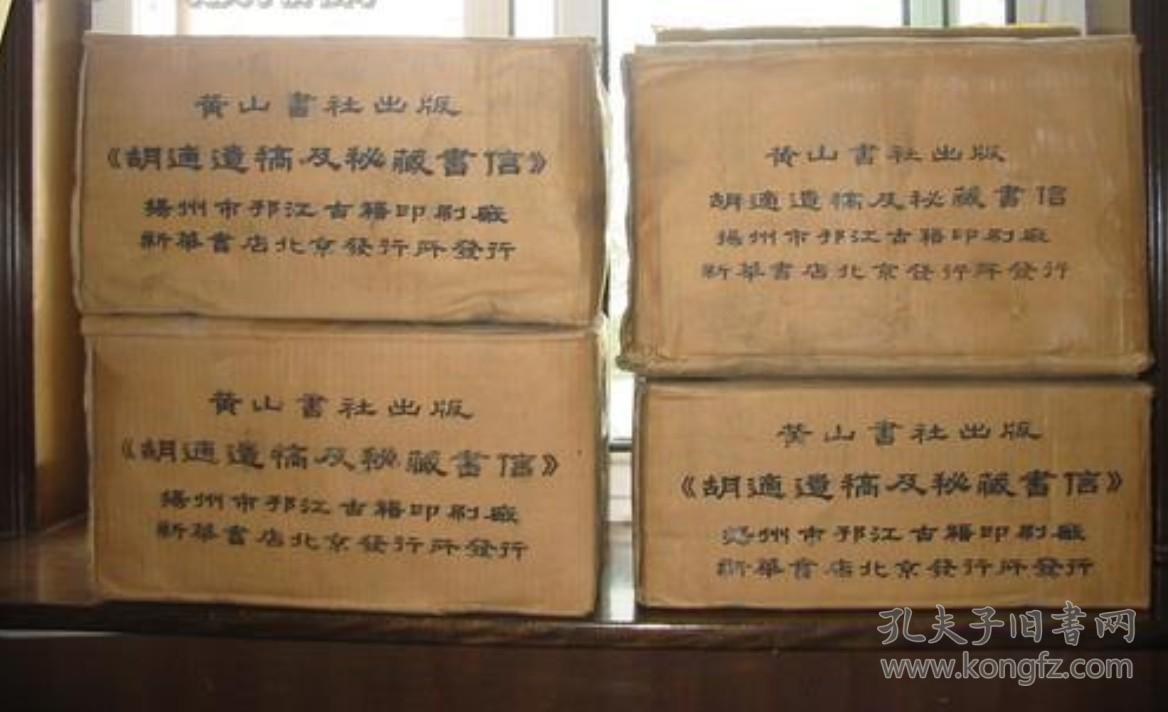 黄山書社出版
《胡適遺稿及秘藏書信》
揚州市邗江古籍印刷廠
新華書店北京發行所發行
黄山書社出版
胡適遺稿及秘藏書信
揚州市邗江古籍印刷廠
新華書店北京發行所發行
黄山書社出版
《胡適遺稿及秘藏書信》
揚州市邗江古籍印刷廠
新華書店北京發行所發行
黄山書社出版
《胡適遺稿及秘藏書信》
揚州市邗江古籍印刷廠
新華書店北京發行所發行
孔夫子旧书网
www.kongfz.com